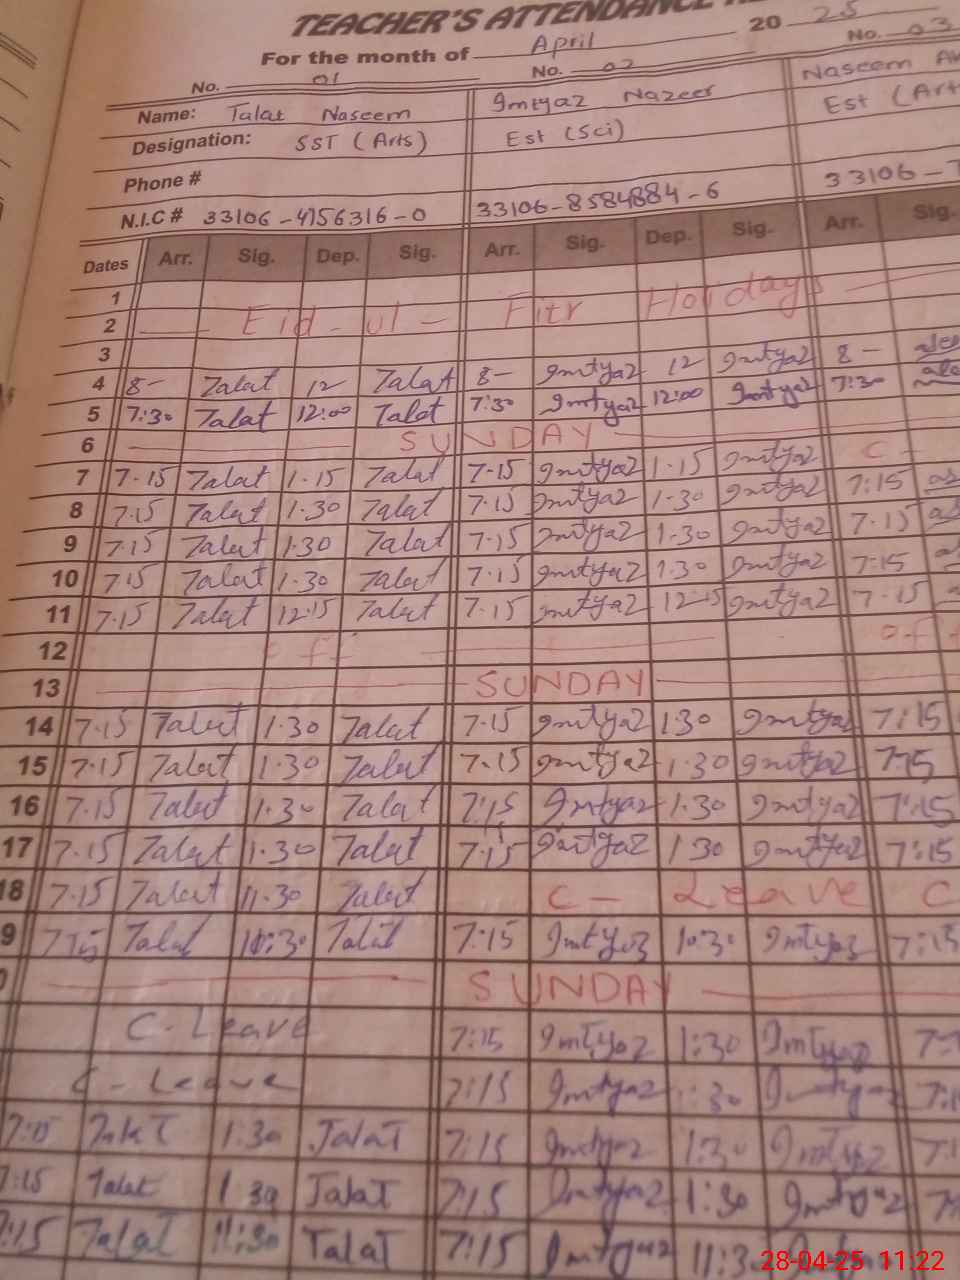 TEACHER'S ATTENDANCE
For the month of April 2025
No. 01 No. 02 No. 03
Name: Talat Naseem Imtyaz Nazeer Naseem
Designation: SST (Arts) Est (Sci) Est (Arts
Phone #
N.I.C # 33106-4156316-0 33106-8584884-6 33106-7
Dates Arr. Sig. Dep. Sig. Arr. Sig. Dep. Sig. Arr. Sig.
1
2 Eid-ul-Fitr Holidays
3
4 8- Talat 12 Talat 8- Imtyaz 12 Imtyaz 8-
5 7:30 Talat 12:00 Talat 7:30 Imtyaz 12:00 Imtyaz 7:30
6 SUNDAY
7 7.15 Talat 1.15 Talat 7.15 Imtyaz 1.15 Imtyaz C-
8 7.15 Talat 1.30 Talat 7.15 Imtyaz 1.30 Imtyaz 7:15
9 7.15 Talat 1.30 Talat 7.15 Imtyaz 1.30 Imtyaz 7.15
10 7.15 Talat 1.30 Talat 7.15 Imtyaz 1.30 Imtyaz 7:15
11 7.15 Talat 12.15 Talat 7.15 Imtyaz 12.15 Imtyaz 7.15
12 off off
13 SUNDAY
14 7.15 Talat 1.30 Talat 7.15 Imtyaz 1.30 Imtyaz 7:15
15 7.15 Talat 1.30 Talat 7.15 Imtyaz 1.30 Imtyaz 7:15
16 7.15 Talat 1.30 Talat 7:15 Imtyaz 1.30 Imtyaz 7:15
17 7.15 Talat 1.30 Talat 7:15 Imtyaz 1.30 Imtyaz 7:15
18 7.15 Talat 11.30 Talat C-Leave C
9 7:15 Talat 10:30 Talat 7:15 Imtyaz 10:30 Imtyaz 7:15
0 SUNDAY
C-Leave 7:15 Imtyaz 1:30 Imtyaz
C-Leave 7:15 Imtyaz 1:30 Imtyaz
7:15 Talat 1:30 Talat 7:15 Imtyaz 1:30 Imtyaz
7:15 Talat 1:30 Talat 7:15 Imtyaz 1:30 Imtyaz
7:15 Talat 11:30 Talat 7:15 Imtyaz 11:3
28-04-25 11:22